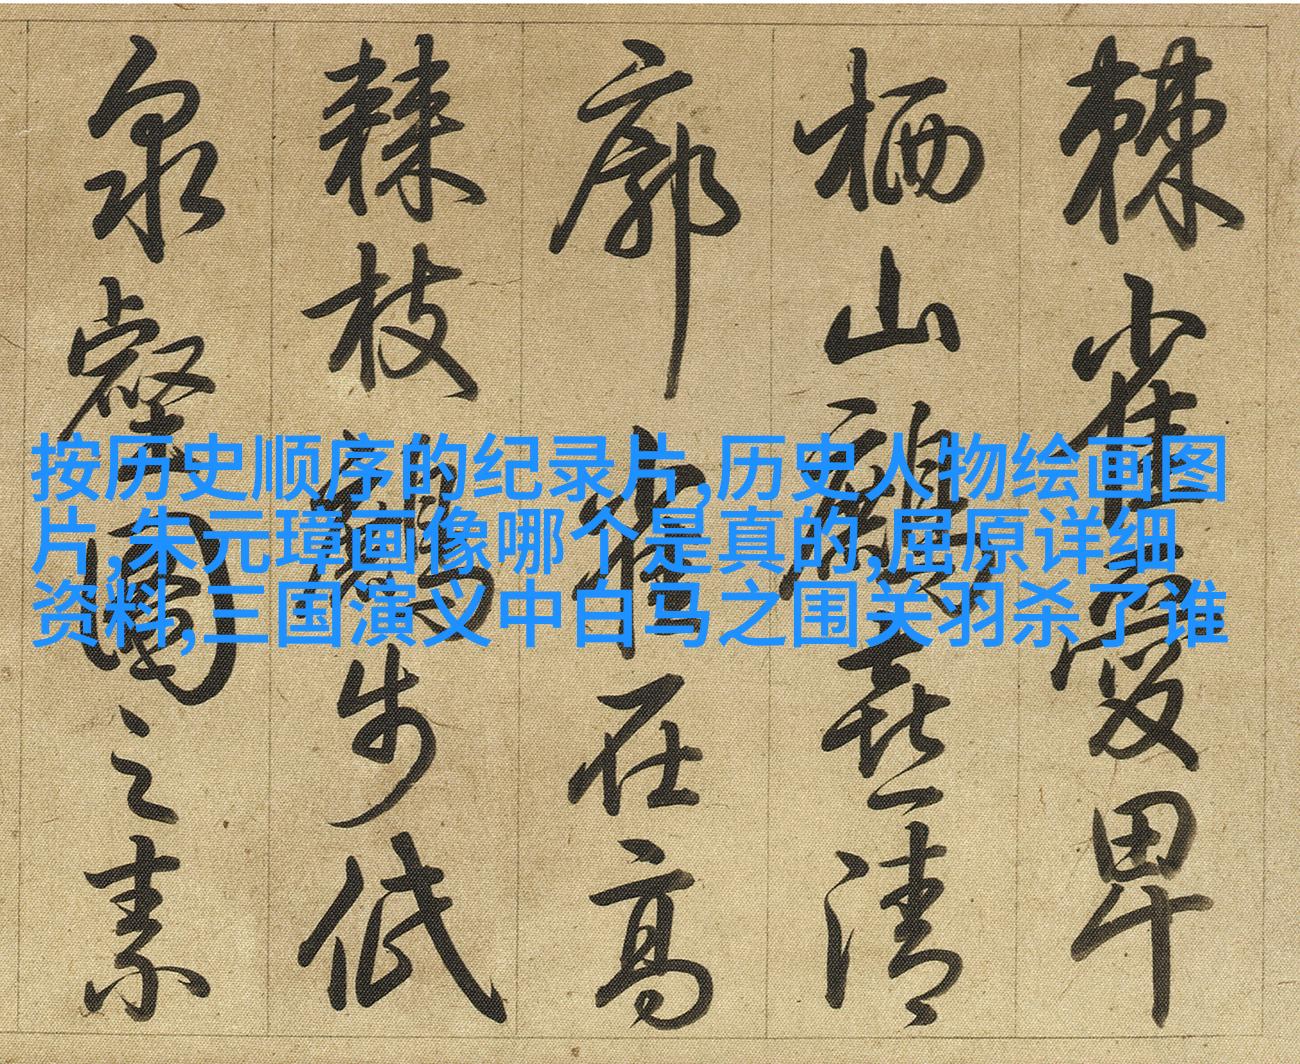 按历史顺序的纪录片,历史人物绘画图
片,朱元璋画像哪个是真的,屈原详细
资料,三国演义中白马之围关羽杀了谁
棘雀愛卑
栖山喜清
廓在高
棘枝步低
泉壑之素